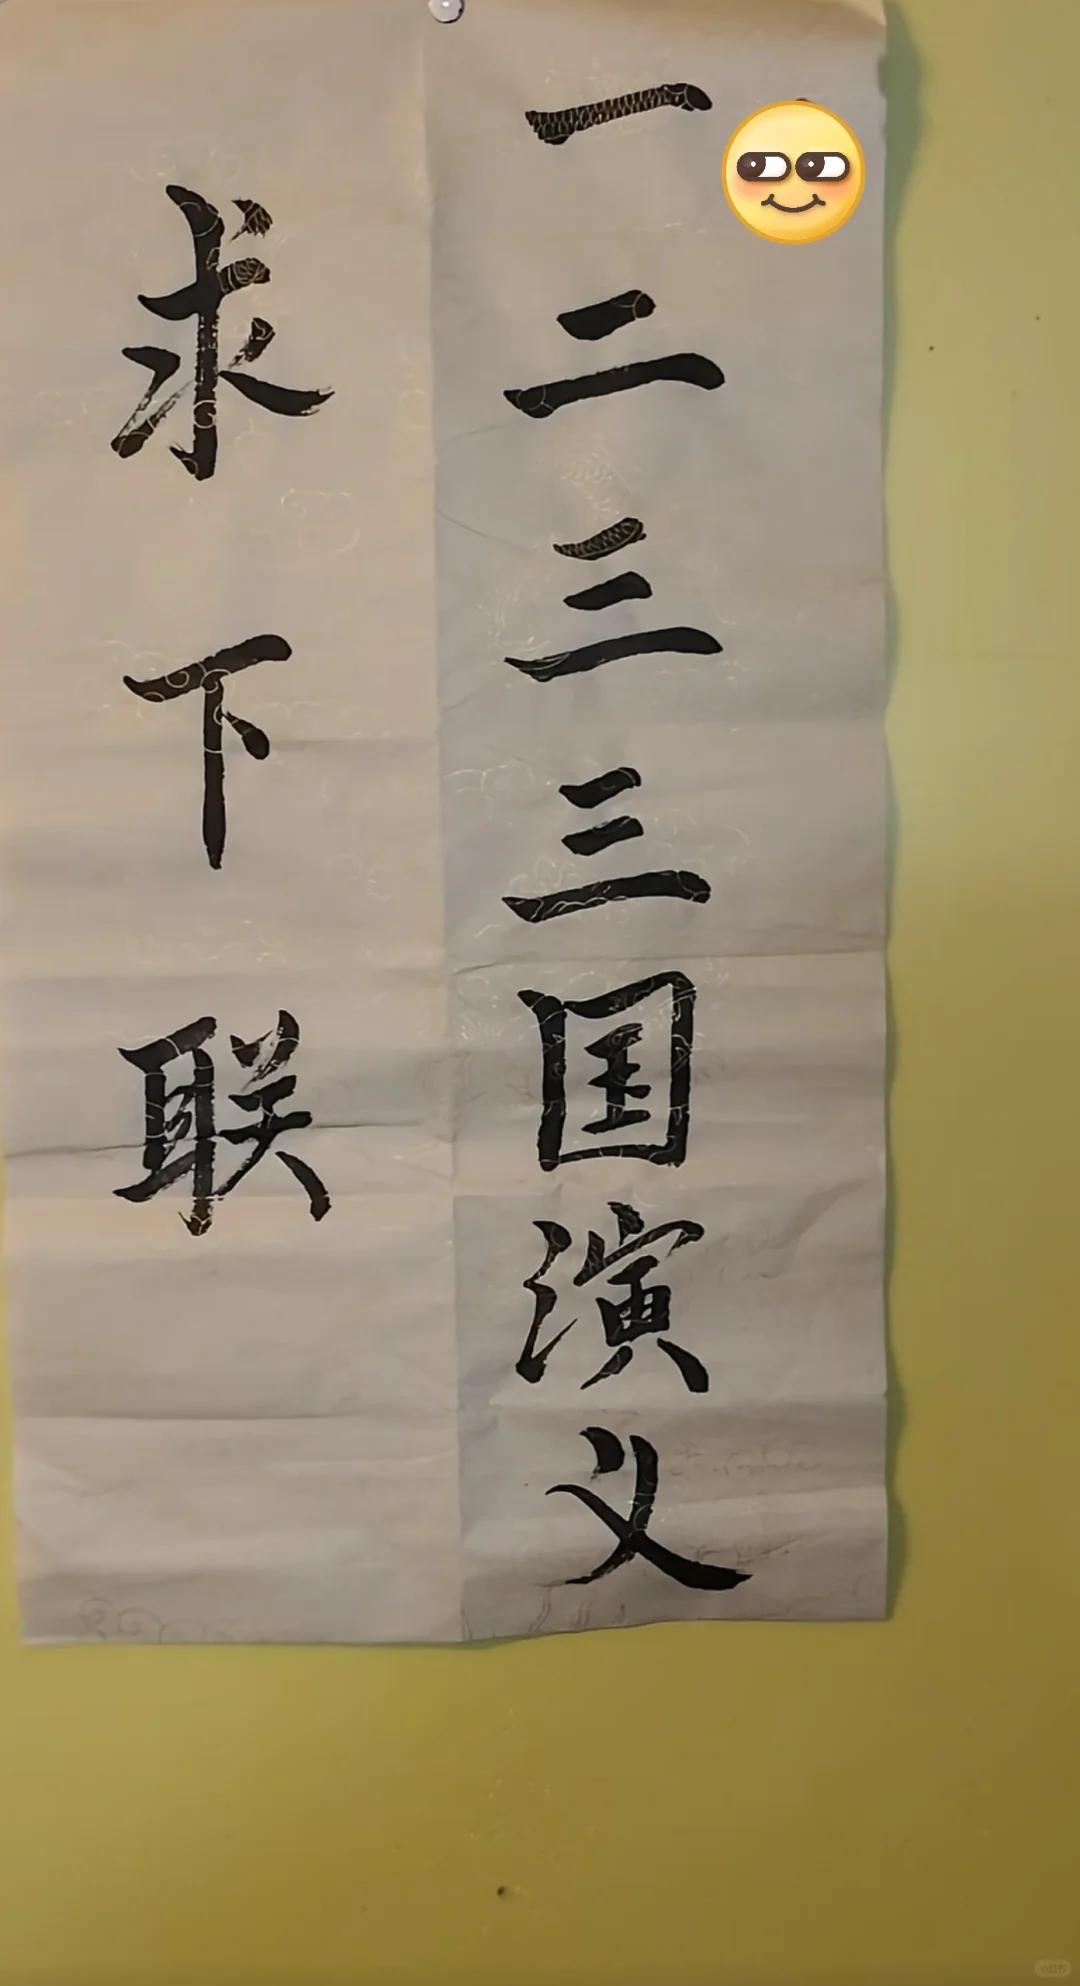 一二三三国演义
求下联